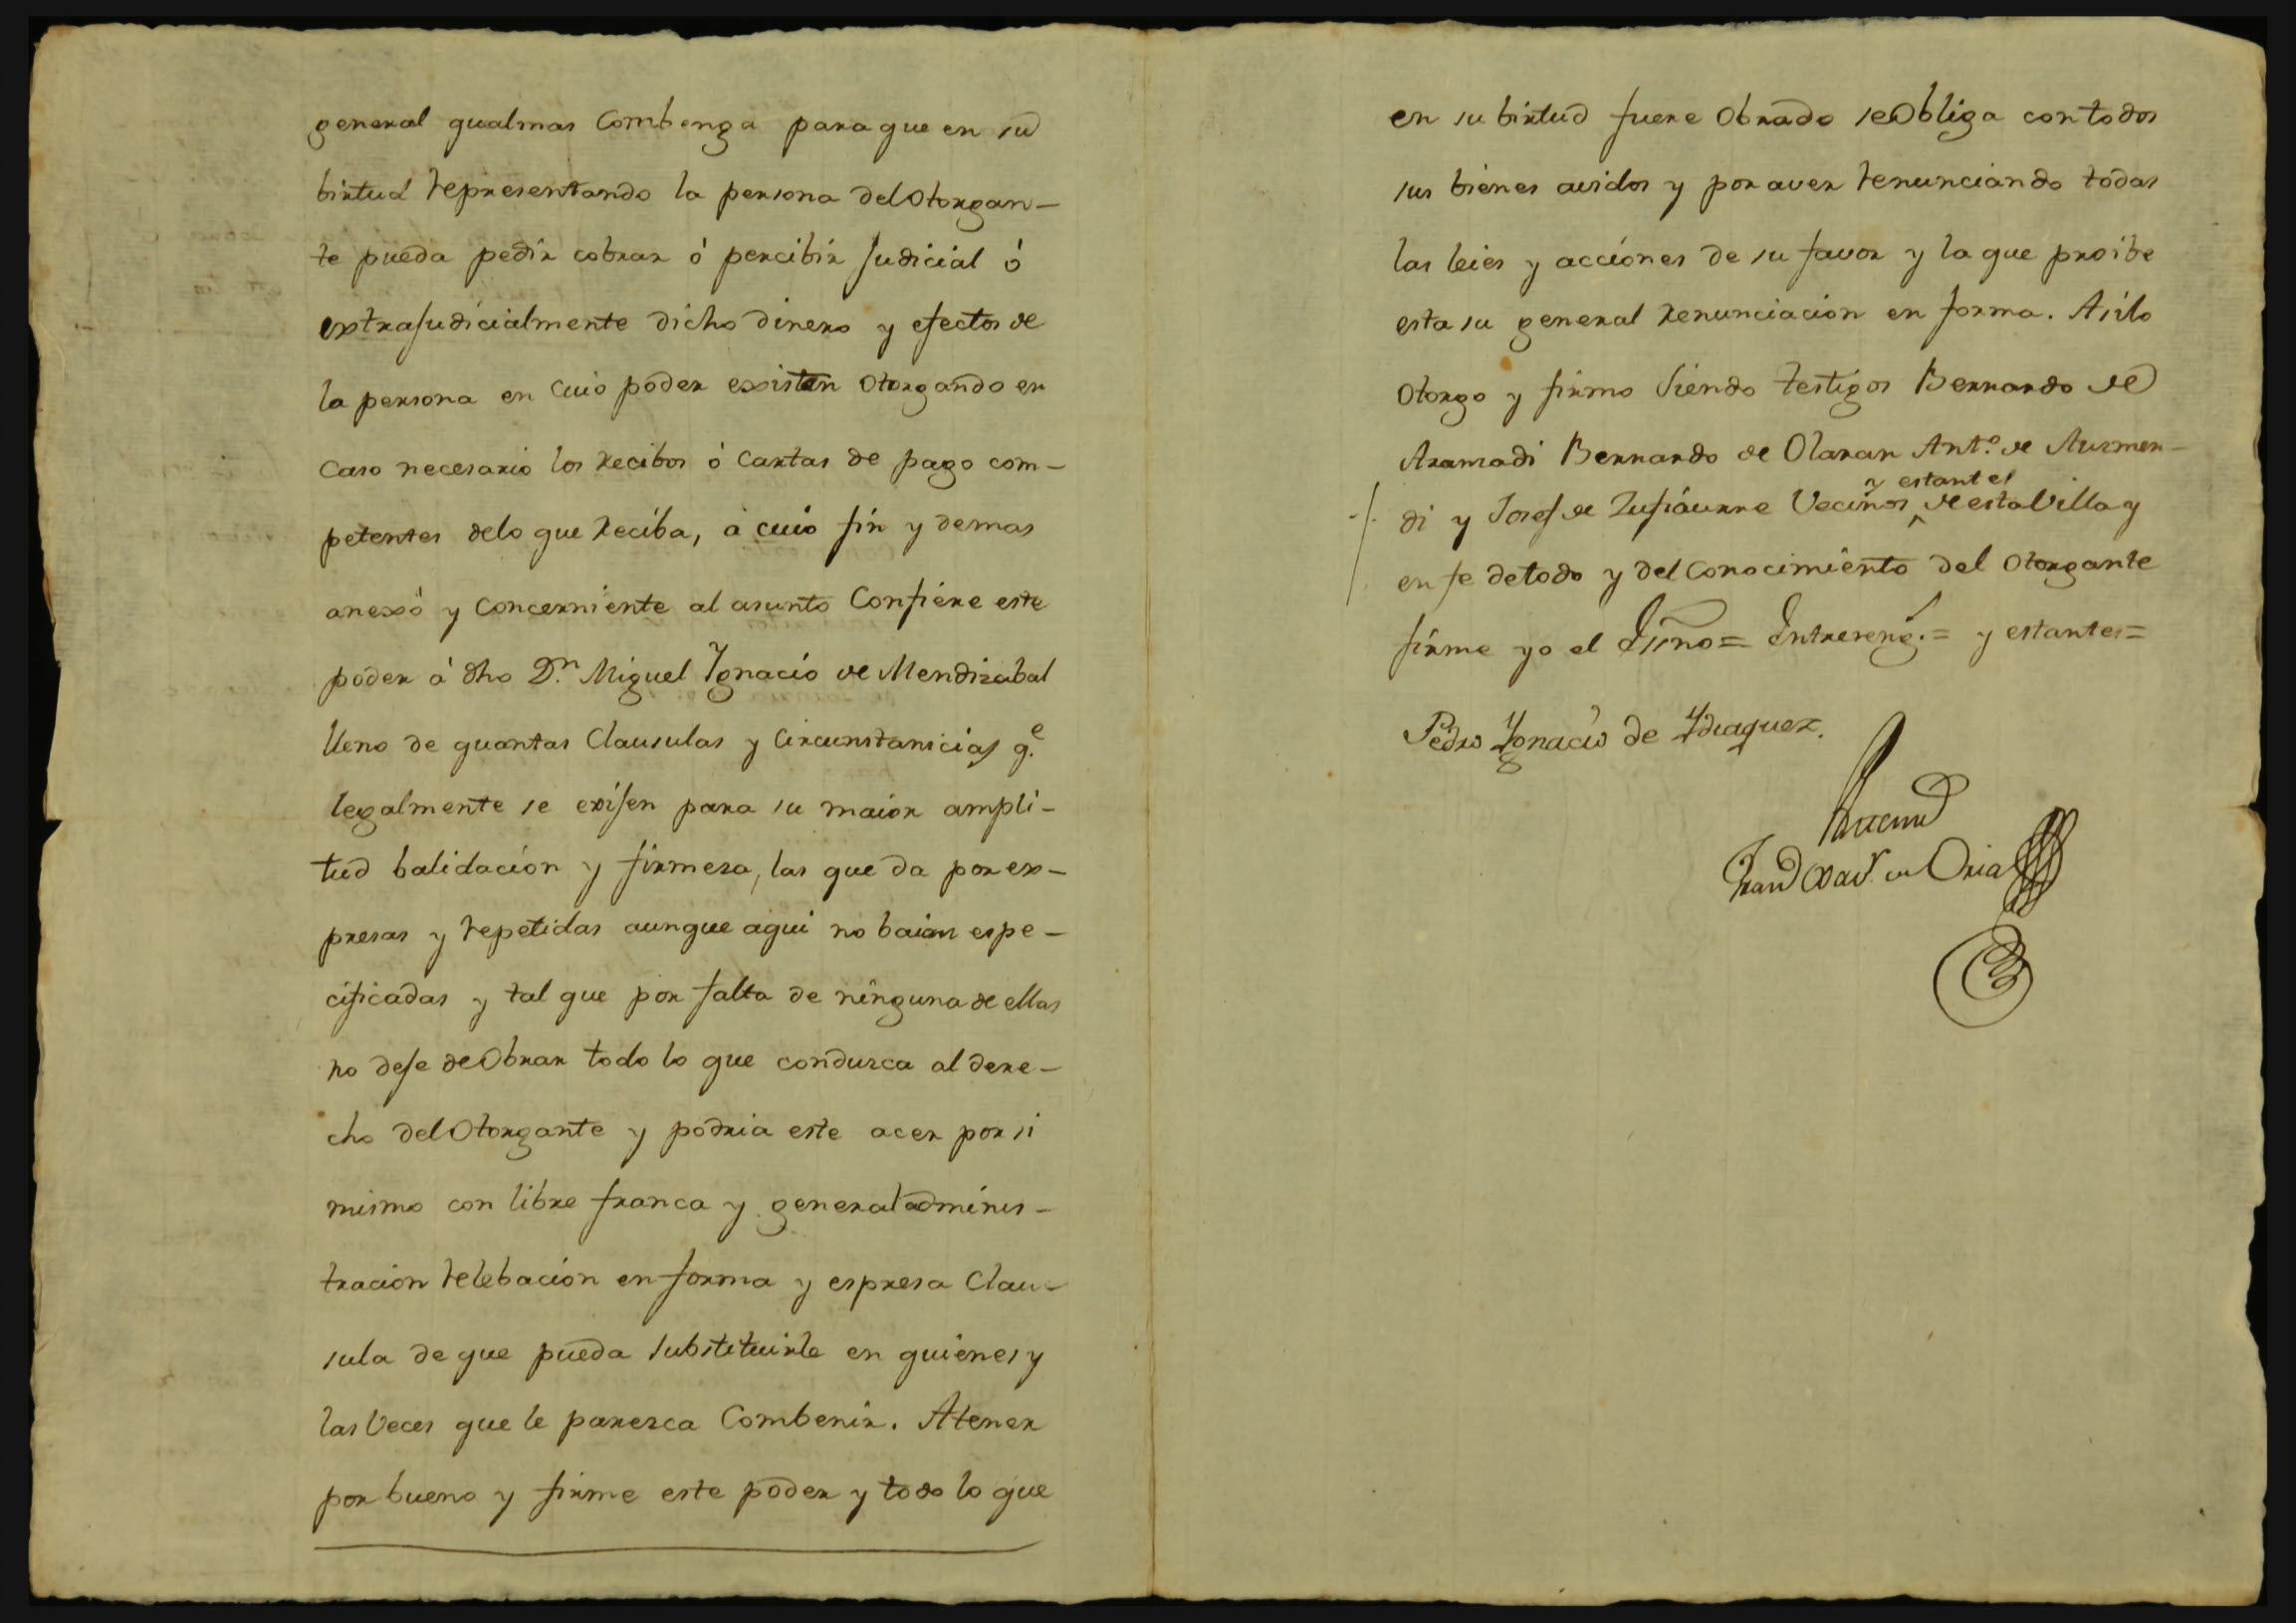 general qualmas Combenga para que en su
birtud representando la persona del Otorgan-
te pueda pedir cobrar ó percibir Judicial ó
extraJudicialmente dicho dinero y efectos de
la persona en cuio poder existen Otorgando en
caso necesario los recibos ó Cartas de pago com-
petentes delo que reciba, a cuio fin y demas
anexó y Concerniente al asunto Confiere este
poder á dho Dn. Miguel Ygnacio de Mendizabal
lleno de quantas Clausulas y Circunstanicias qe.
legalmente se exiJen para su maior ampli-
tud balidacion y firmesa, las que da por ex-
presas y repetidas aunque aqui no baian espe-
cificadas y tal que por falta de ninguna de ellas
no deJe de Obrar todo lo que condusca al dere-
cho del Otorgante y podria este acer por si
mismo con libre franca y general adminis-
tracion relebacion en forma y espresa Clau-
sula de que pueda Substituirle en quienes y
las Veces que le paresca Combenir. Atener
por bueno y firme este poder y todo lo que
en su birtud fuere Obrado se Obliga con todos
sus bienes avidos y por aver renunciando todas
las leies y acciones de su favor y la que proibe
esta su general renunciacion en forma. Asilo
Otorgo y firmo Siendo testigos Bernardo de
Aramadi Bernardo de Olaran Anto. de Ausmen-
y estantes
di y Josef de ZuFiaurre Vecinos ^ de esta Villa y
en fe de todo y del Conocimiento del Otorgante
firme yo el Essno = Entrereng.= y estantes=
Pedro Ygnacio de Ydiaquez.
Franco Xavr. de Oria